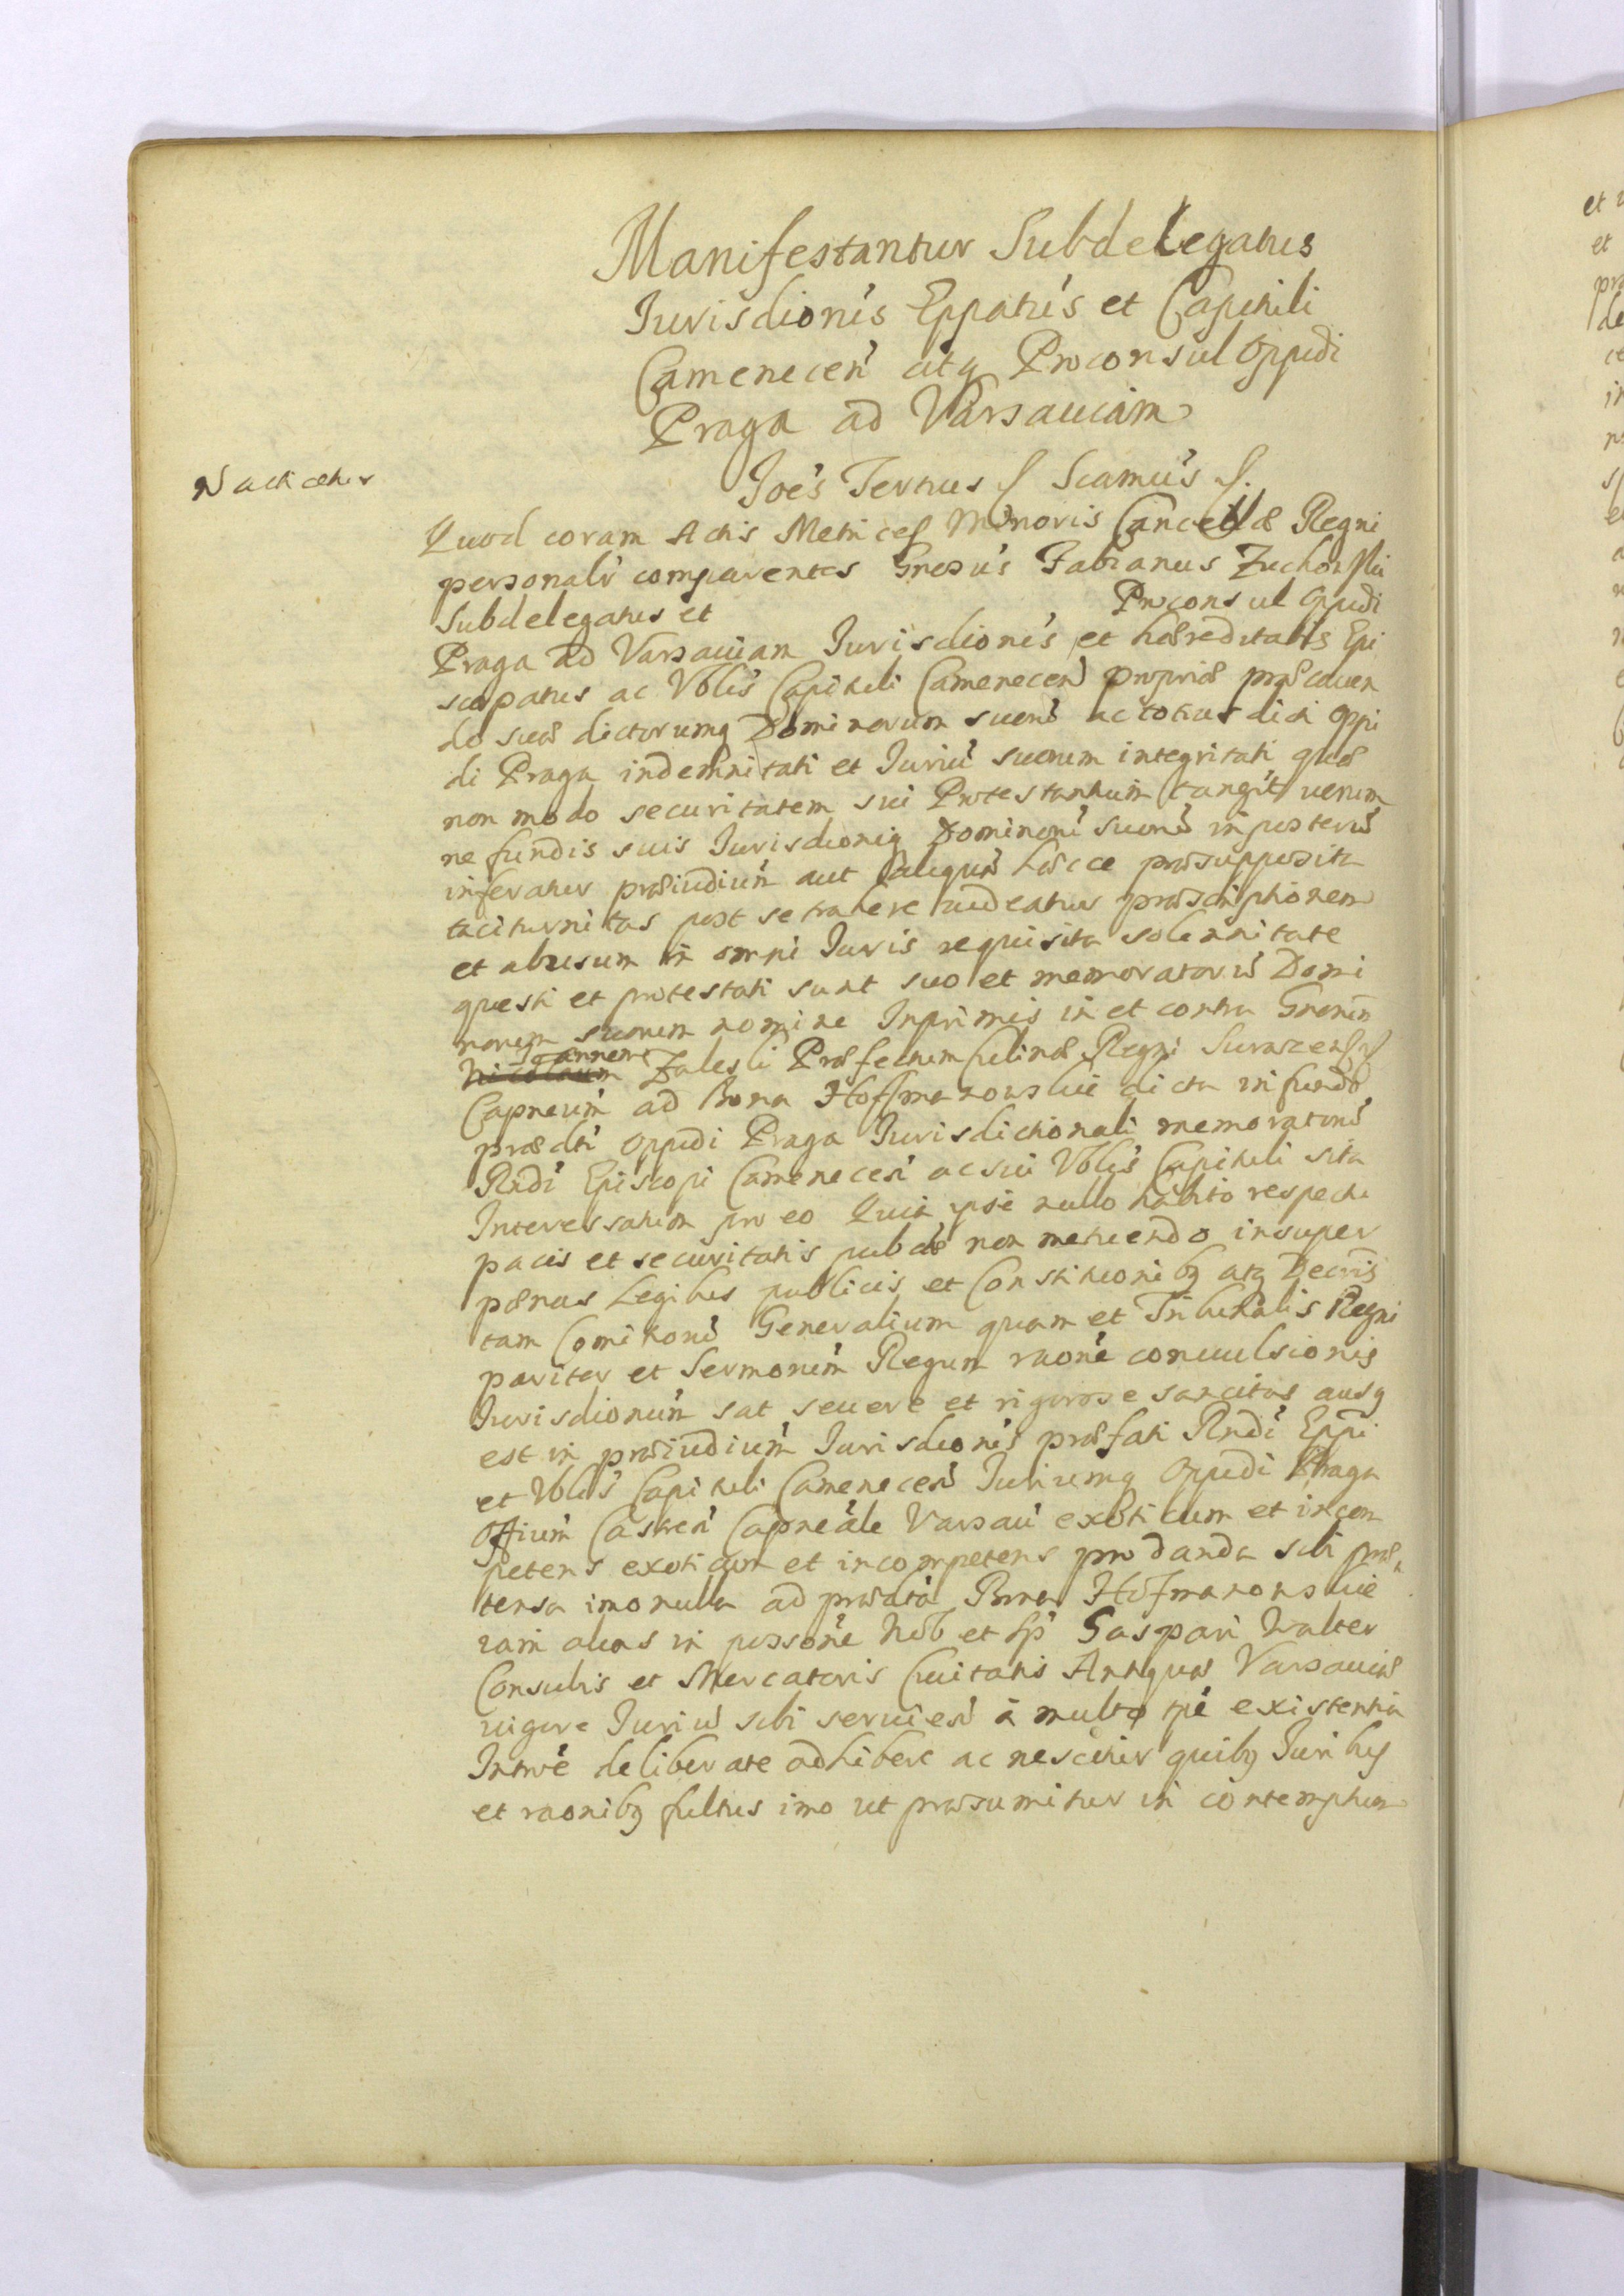 Manifestantur Subdelegatus
Jurisdionis Eppatus et Capituli
Camenecen atq Proconsul Oppidi
Praga ad Varsauiam
Joes Tertius Scamus
Quod coram Actis Metrices Minoris Cancellæ Regni
personalr comparentes Fabianus
Subdelegatus et Proconsul Oppidi
Praga ad Varsauiam Jurisdionis et hæreditatis Epi
scopatus ac Vblis Capituli Camenecen propriæ præcauen
do suæ dictorumq Dominorum suorū ac totius dicti Oppi
di Praga indemnitati et Juriū suorum integritati quæ
non modo securitatem sui Protestantium tangit uerum
ne fundis suis Jurisdioniq Dominorū suorū inposterū
inferatur præiudiciū aut aliquā hæcce præsupposita
taciturnitas post se trahere uideatur præscriptionem
et abusum in omni Juris requisita solennitate
questi et protestati sunt suo et memoratorū Domi
norum suorum nomine Inprimis in et contra Gnorum
Joannem Zaleski Præfectum Culinæ Regni Surazcen
Capneum ad Bona Hoffmanowskie dicta in fundo
prædti oppidi Praga Jurisdictionali memoratorū
Rndi Episcopi Camenecen ac sui Vblis Capituli sita
Interessatum pro eo Quia ipse nullo habito respectu
pacis et securitatis pubcæ non metuendo insuper
pænas Legibus publicis et Constitutionibq atq Decris
tam Comitiorū Generalium quam et Tribunalis Regni
pariter et Sermonum Regum raone conuulsionis
Jurisdionum sat seuere et rigorose sancitas ausq
est in præiudicium Jurisdionis præfati Rndi Eppi
et Vblis Capituli Camenecen Juriumq Oppidi Praga
Offium Castren Capneale Varsau exoticum et incom
petens exoticum et incompetens pro danda sibi præ
tensa imo nulla ad prædicta Bona Hofmanowskie
iam alias in possone Nob et Sp Gaspari Walter
Consulis et Mercatoris Ciuitatis Antiquæ Varsauiæ
uigore Juriū sibi seruien a multo tpe existentia
Introe deliberate adhibere ac nescitur quibq Juribq
et raonibq fultus imo ut præsumitur in contemptum